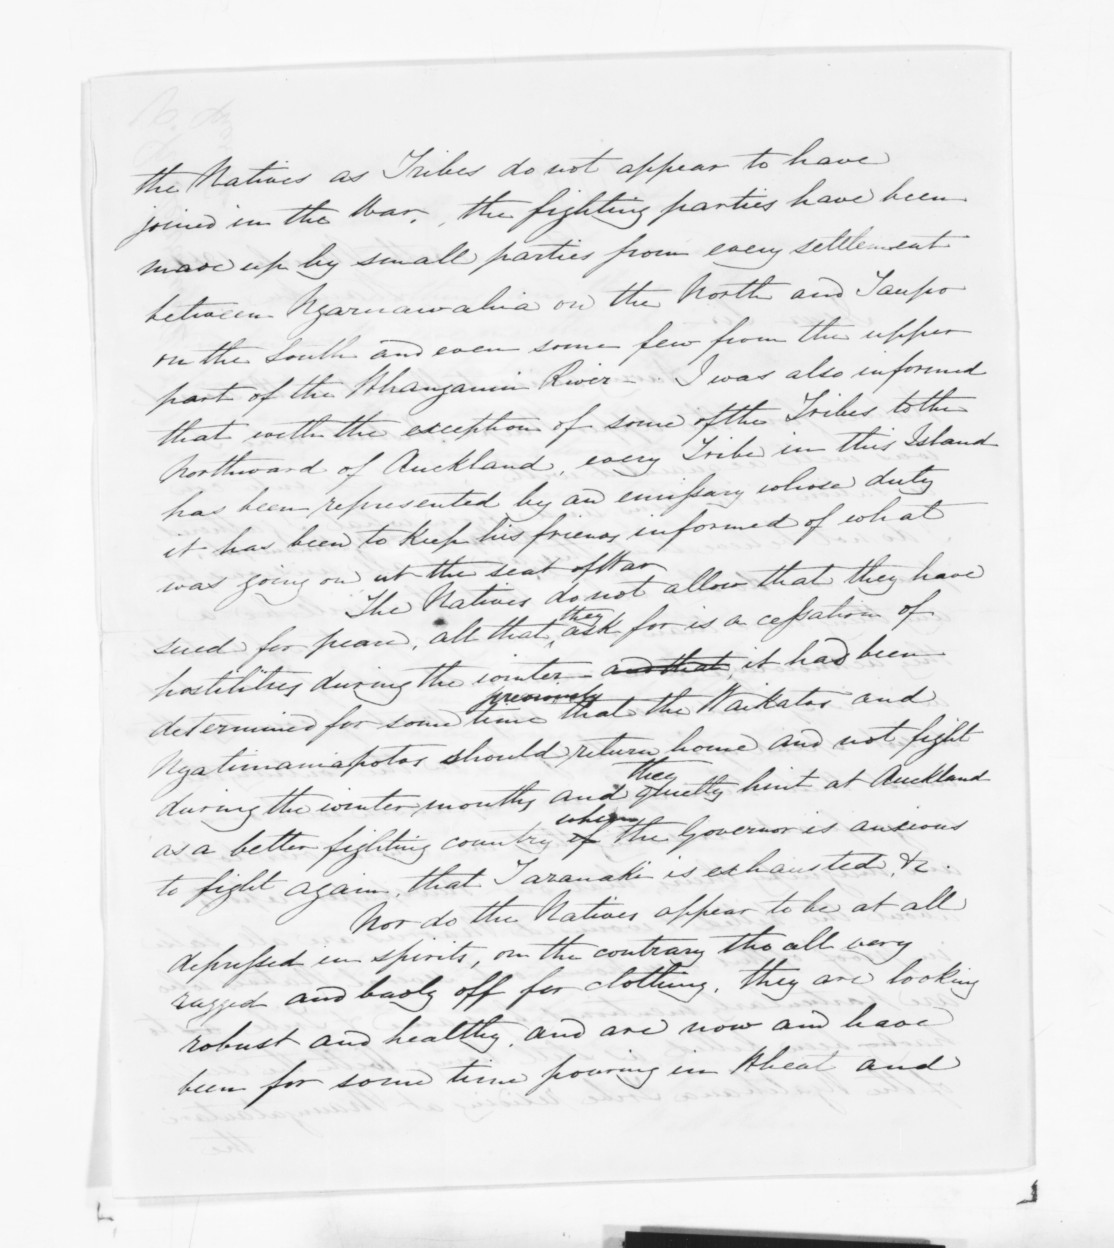 the Natives as Tribes do not appear to have
joined in the War, the fighting parties have been
made up by small parties from every settlement
between Ngaruawahia on the North and Taupo
on the South and even some few from the upper
part of the Whanganui River – I was also informed
that with the exception of some of the Tribes to the
Northward of Auckland, every Tribe in this Island
has been represented by an emissary whose duty
it has been to keep his friends informed of what
was going on at the seat of War
The Natives do not allow that they have
sued for peace, all that they ask for is a cessation of
hostilities during the winter and that, it had been
determined for some time previously that the Waikatos and
Ngatimaniapotos should return home and not fight
during the winter months and they quietly hint at Auckland
as a better fighting country if when the Governor is anxious
to fight again, that Taranaki is exhausted, &c.
Nor do the Natives appear to be at all
depressed in spirits, on the contrary tho all very
ragged and badly off for clothing, they are looking
robust and healthy, and are now and have
been for some time pouring in Wheat and